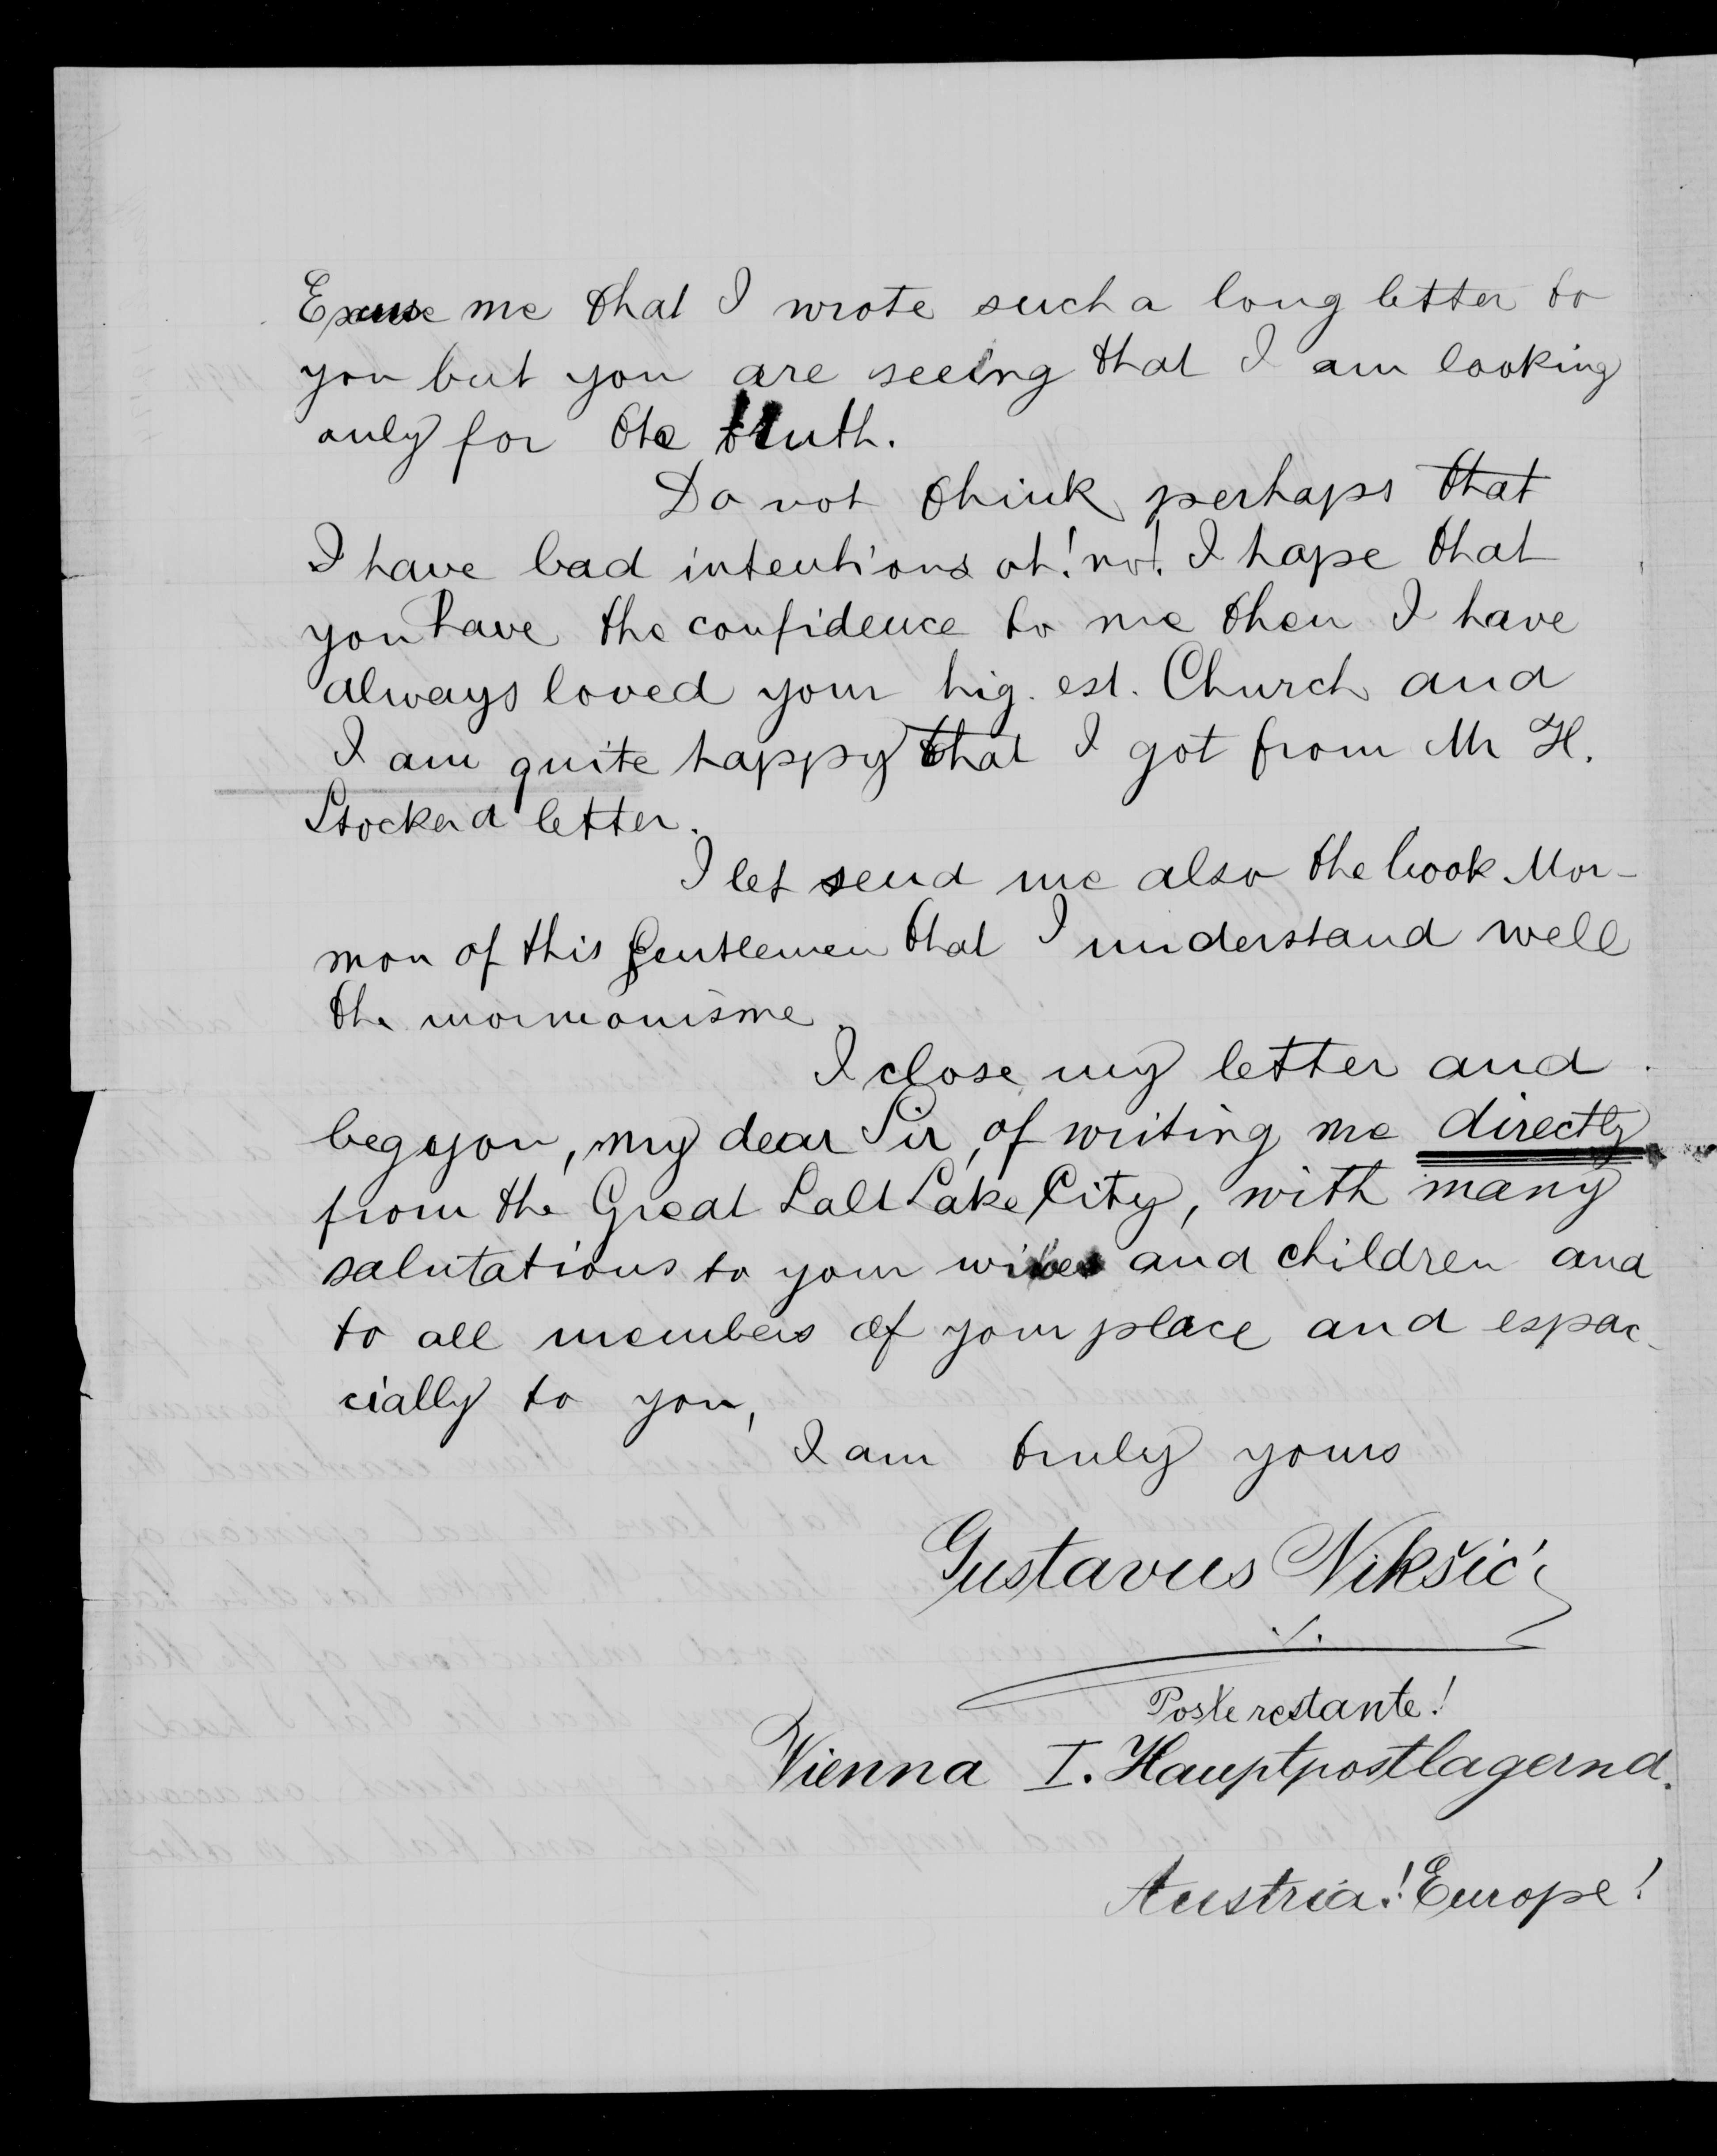 Excuse me that I wrote such a long letter to
you but you are seeing that I am looking
only for the truth.
Do not think perhaps that
I have bad intentions oh! no! I hope that
you have the confidence to me then I have
always loved your hig. est. Church and
I am quite happy that I got from Mr H.
Stocker a letter.
I let send me also the book Mor-
mon of this Gentlemen that I understand well
the mormonisme.
I close my letter and
beg you, my dear Sir, of writing me directly
from the Great Salt Lake City, with many
salutations to your wives and children and
to all members of your place and espac-
cially to you,
I am truly yours
Gustavus Nikšić
Poste restante!
Vienna I. Hauptpostlagernd.
Austria! Europe!